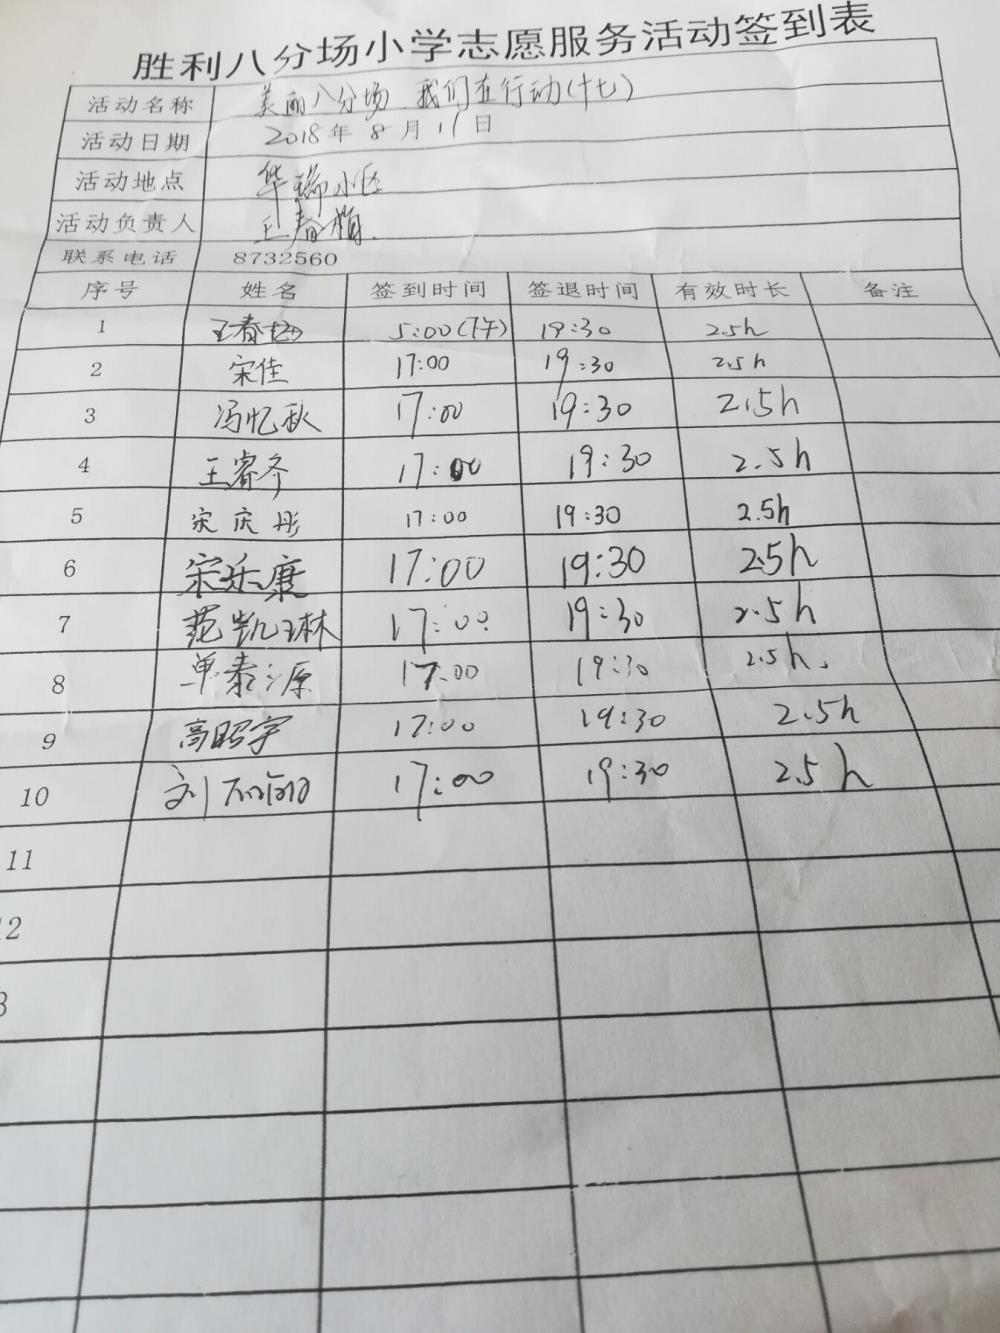 胜利八分场小学志愿服务活动签到表
活动名称 美丽八分场、我们在行动(十七)
活动日期 2018年8月11日
活动地点 华瑞小区
活动负责人 王春梅
联系电话 8732560
序号 姓名 签到时间 签退时间 有效时长 备注
1 王春梅 5:00(下午) 19:30 2.5h
2 宋佳 17:00 19:30 2.5h
3 冯忆秋 17:00 19:30 2.5h
4 王睿齐 17:00 19:30 2.5h
5 宋庆彤 17:00 19:30 2.5h
6 宋乐康 17:00 19:30 2.5h
7 范凯琳 17:00 19:30 2.5h
8 单泰源 17:00 19:30 2.5h.
9 高昭宇 17:00 19:30 2.5h
10 刘 17:00 19:30 2.5h
11
12
3